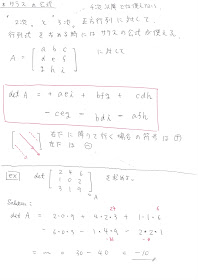 * サラスの公式
4次以降では使えない。
"2次" と "3次" 正方行列に対して、
行列式を求める時にはサラスの公式が使える。
A = [ a b c
d e f
g h i ] に対して
det A = + aei + bfg + cdh
- ceg - bdi - afh
右下に掛って行く場合の符号は ⊕
左下は ⊖
ex) det [ 2 4 6
1 0 2
3 1 9 ] を求めよ。
A
Solution:
24 6
det A = 2・0・9 + 4・2・3 + 1・1・6
- 6・0・3 - 1・4・9 - 2・2・1
= 〃 = 30 - 40 = -10